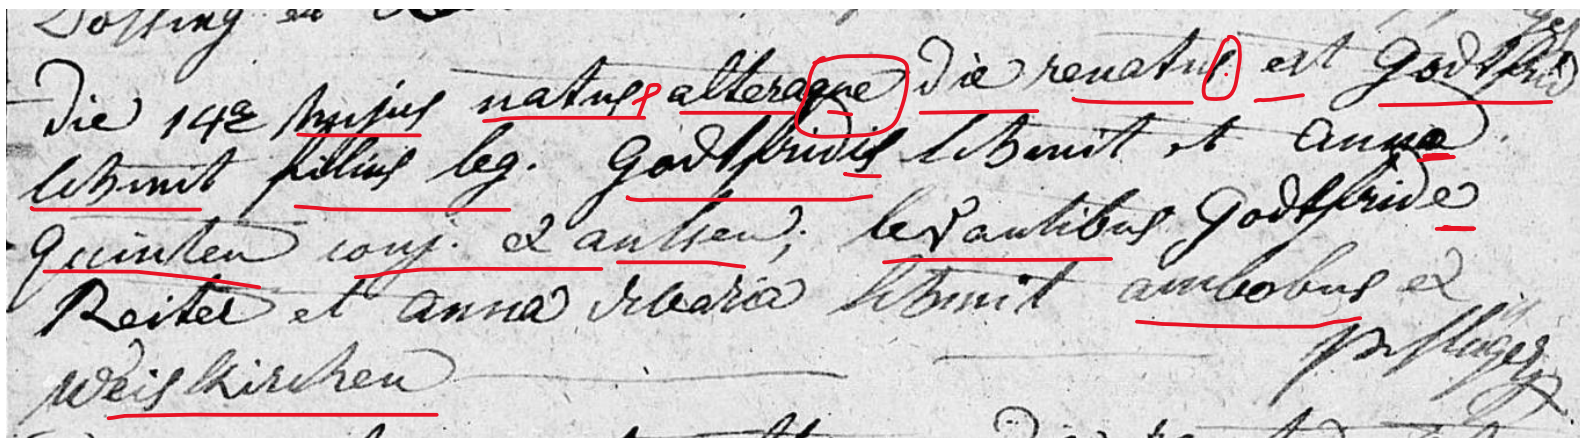 die 14a hujus natus alteraque die renatus est Godtfrid
schmit filius leg. Godtfridi schmit et anna
Quinten conj. ex antsen; levantibus Godtfride
Reiter et anna Maria schmit ambobus ex
Weiskirchen